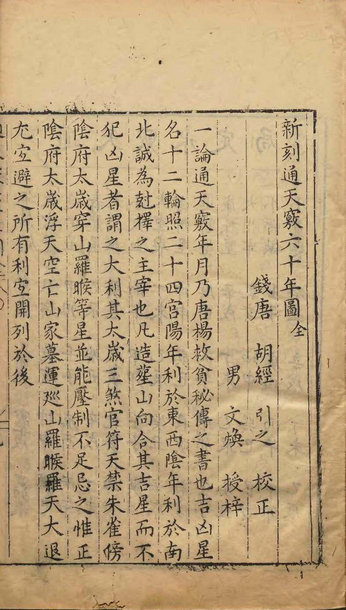 新刻通天竅六十年圖全
錢唐 胡經 引之 校正
男 文煥 授梓
一論通天竅年月乃唐楊救貧秘傳之書也吉凶星
名十二輪照二十四宮陽年利於東西陰年利於南
北誠為尅擇之主宰也凡造塟山向合其吉星而不
犯凶星者謂之大利其太歲三煞官符天禁朱雀傍
陰府太歲穿山羅睺等星並能壓制不足忌之惟正
陰府太歲浮天空亡山家墓運廵山羅睺羅天大退
尤宜避之所有利宜開列於後